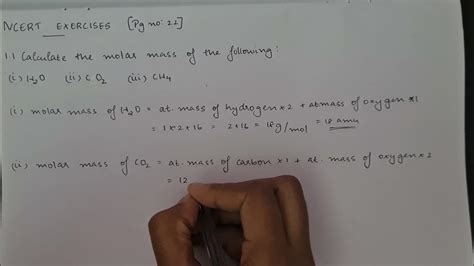 NCERT EXERCISES [Pg no: 22]
1.1 Calculate the molar mass of the following:
(i) H2O (ii) CO2 (iii) CH4
(i) molar mass of H2O = at. mass of hydrogen × 2 + at mass of oxygen × 1
= 1 × 2 + 16 = 2 + 16 = 18 g/mol = 18 amu
(ii) molar mass of CO2 = at. mass of carbon × 1 + at. mass of oxygen × 2
= 12